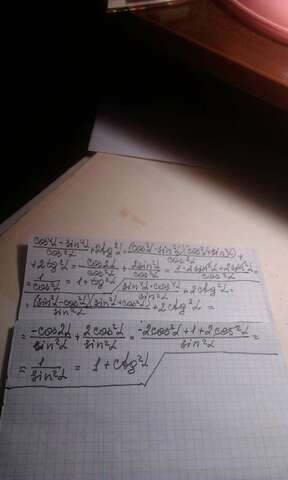 cos⁴α - sin⁴α / cos²α + 2tg²α = (cos²α - sin²α)(cos²α + sin²α) / cos²α +
+ 2tg²α = cos2α / cos²α + 2sin²α / cos²α = 1 - 2sin²α + 2sin²α / cos²α =
= 1 / cos²α = 1 + tg²α
sin⁴α - cos⁴α / sin²α + 2ctg²α =
= (sin²α - cos²α)(sin²α + cos²α) / sin²α + 2ctg²α =
= -cos2α / sin²α + 2cos²α / sin²α = -2cos²α + 1 + 2cos²α / sin²α =
= 1 / sin²α = 1 + ctg²α